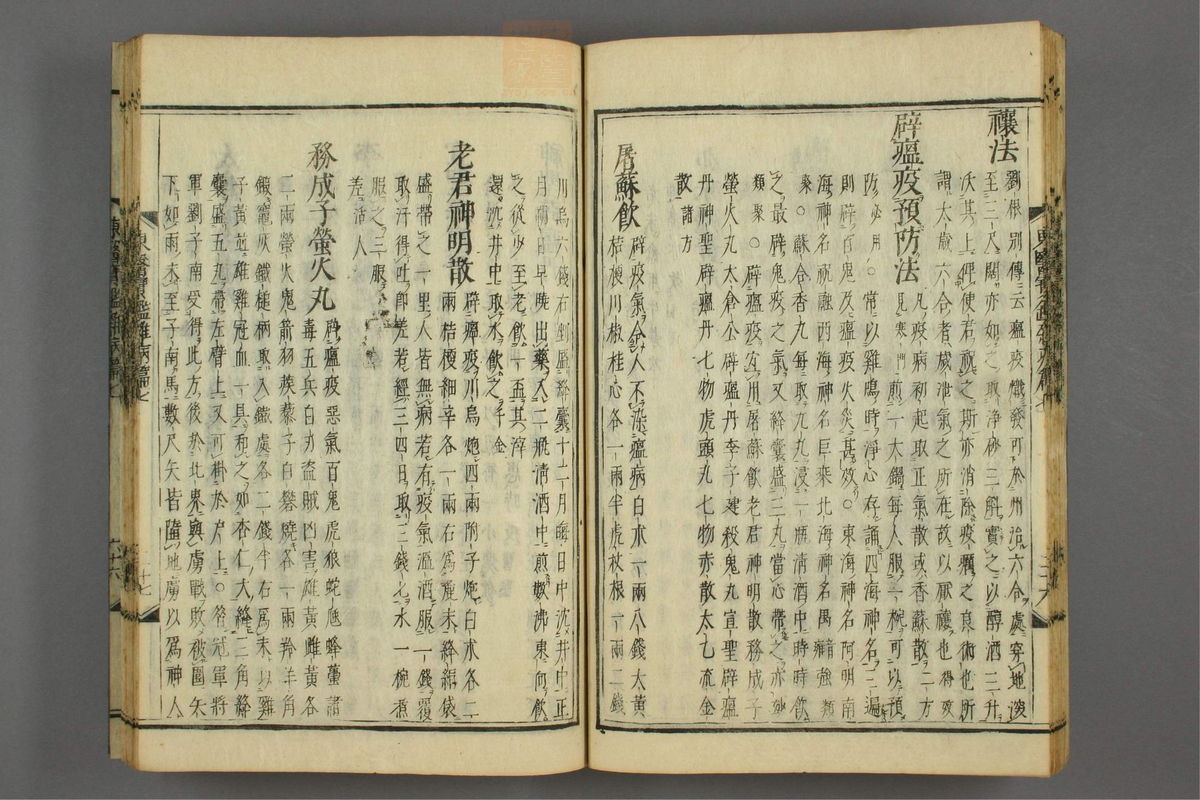 禳法
劉根別傳云瘟疫熾發可於州治六合處穿地深
至三尺闊亦如之取淨砂三斛實之以醇酒三升
沃其上俾使君祝之斯亦消除疫癘之良術也所
謂太歲六合者歲泄氣之所在故以厭禳也得效
辟瘟疫預防法
凡疫病初起取正氣散或香蘇散二方
見寒門煎一大鍋每人服一椀可以預
防必用○常以雞鳴時淨心存誦四海神名三遍
則辟百鬼及瘟疫火災甚效○東海神名阿明南
海神名祝融西海神名巨乘北海神名禺强類
聚○蘇合香九每取九丸浸一瓶清酒中時時飮
之最辟鬼疫又絳囊盛三丸當心帶之亦妙
類聚○辟瘟疫宜用屠蘇飮老君神明散務成子
螢火丸太倉公辟瘟丹李子建殺鬼丸宣聖辟瘟
丹神聖辟瘟丹七物虎頭丸七物赤散太乙流金
散諸方
屠蘇飮
辟疫氣令人不染瘟病白朮一兩八錢大黃
桔梗川椒桂心各一兩半虎杖根一兩二錢
川烏六錢右剉盛絳囊十二月晦日中沈井中正
月朔日早曉出藥入二瓶清酒中煎數沸東向飮
之從少至老飮一盃其滓
還沈井中取水飮之千金
老君神明散
辟瘟疫川烏炮四兩附子炮白朮各二
兩桔梗細辛各一兩右爲麁末絳絹袋
盛帶之一里人皆無病若有疫氣溫酒服一錢覆
取汗得吐卽差若經三四日取三錢匕水一椀煮
服之三服
差活人
務成子螢火丸
辟瘟疫惡氣百鬼虎狼蛇虺蜂蠆諸
毒五兵白刃盜賊凶害雄黃雌黃各
二兩螢火鬼箭羽蒺藜子白礬燒各一兩羚羊角
鍛竈灰鐵槌柄取入鐵處各二錢半右爲末以雞
子黃並雄雞冠血一具和之如杏仁大絳三角絳
囊盛五丸帶左臂上又可掛於戶上○昔冠軍將
軍劉子南受得此方後於北界與虜戰敗被圍矢
下如雨未至子南馬數尺矢皆墮地虜以爲神人